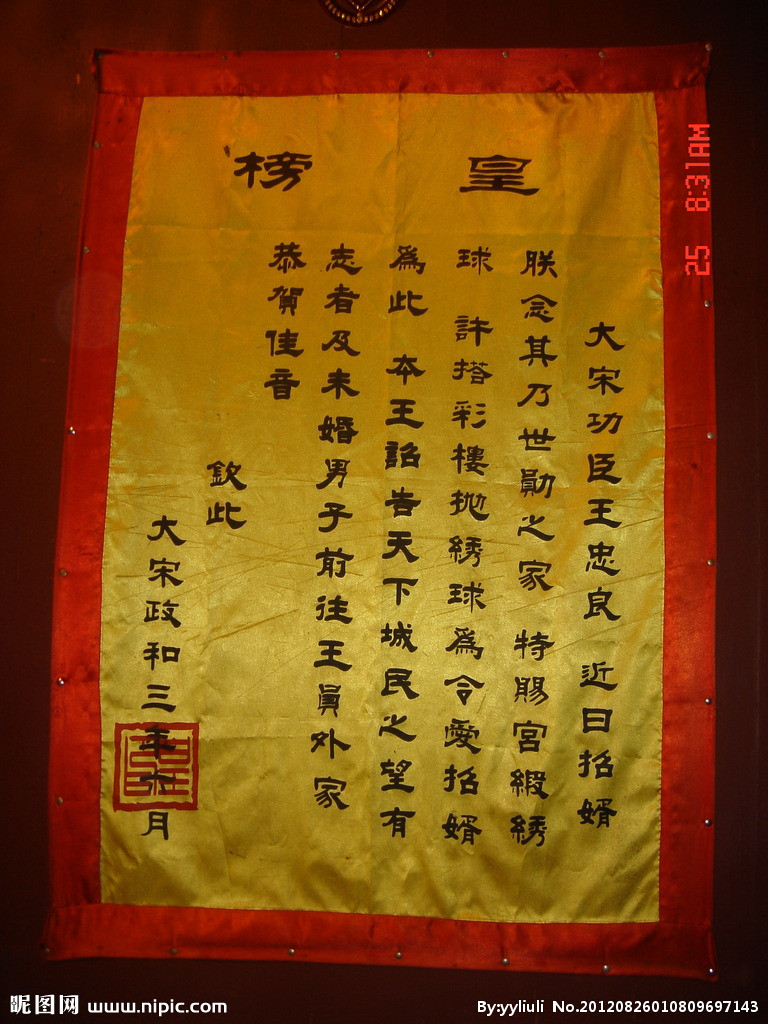 皇榜
大宋功臣王忠良 近日招婿
朕念其乃世勛之家 特賜宮緞綉
球 許搭彩樓抛綉球為令愛招婿
為此 本王詔告天下城民之望有
志者及未婚男子前往王員外家
恭賀佳音
欽此
大宋政和三年六月
25 8:31AM
昵图网 www.nipic.com
By:yyliuli No.20120826010809697143